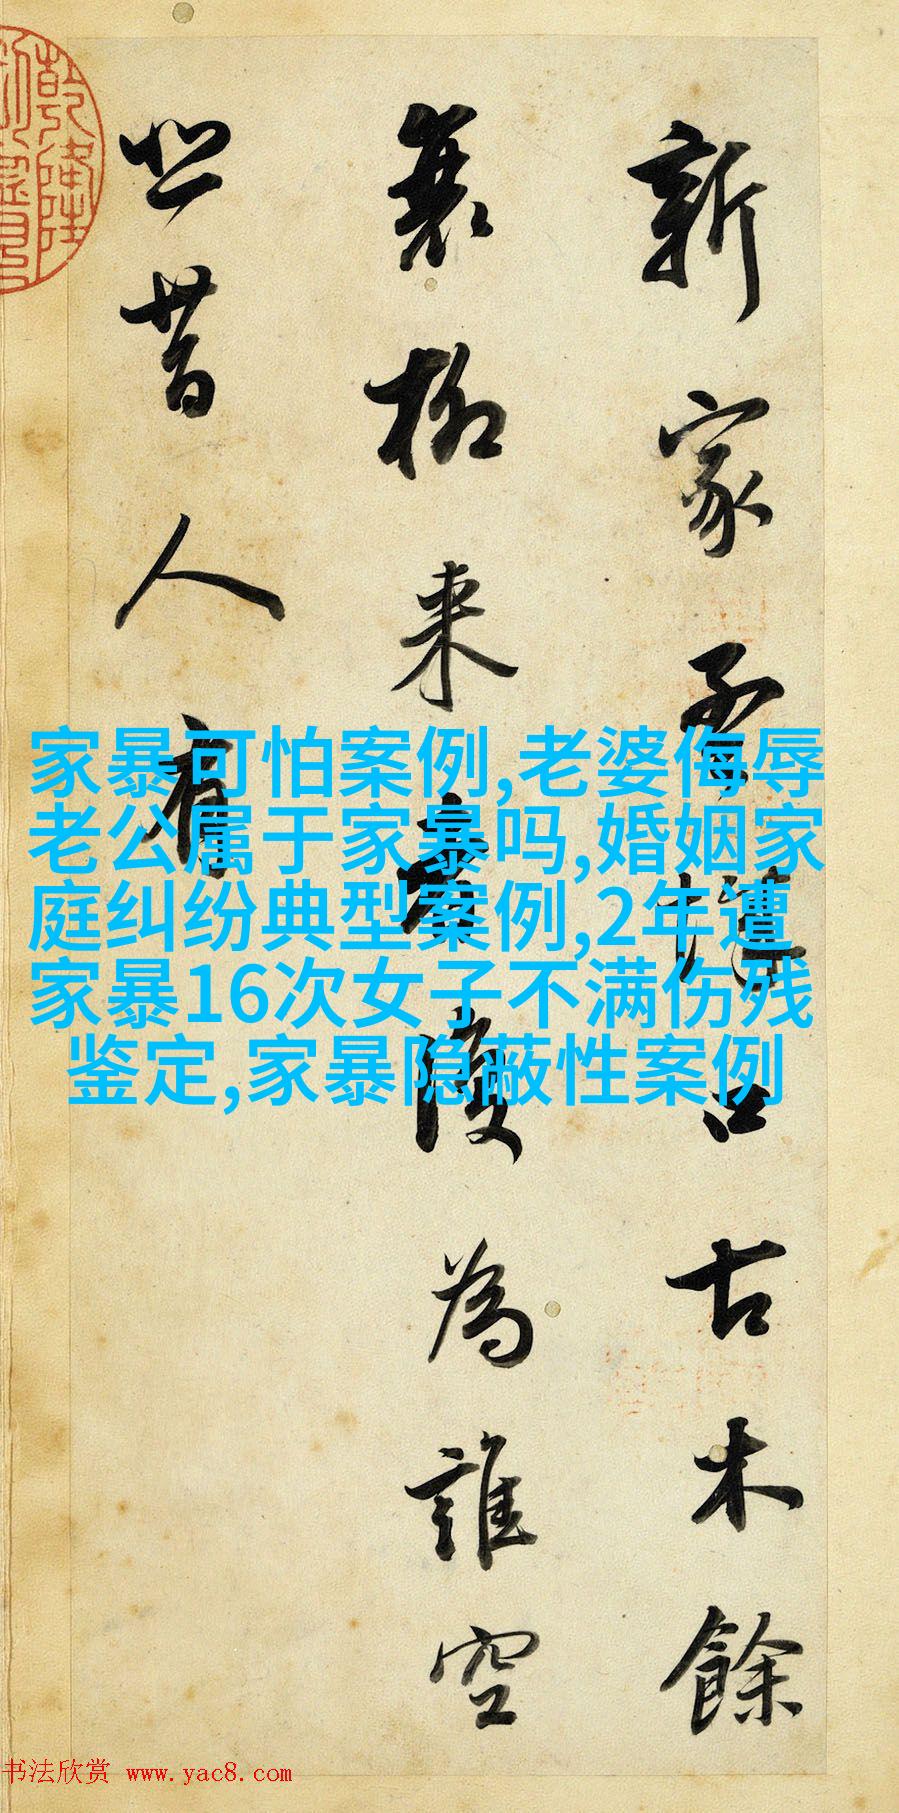 新家孟城口古木餘
衰柳来者復為誰空
悲昔人有
家暴可怕案例,老婆侮辱
老公属于家暴吗,婚姻家
庭纠纷典型案例,2年遭
家暴16次女子不满伤残
鉴定,家暴隐蔽性案例
乾隆
书法欣赏 www.yac8.com